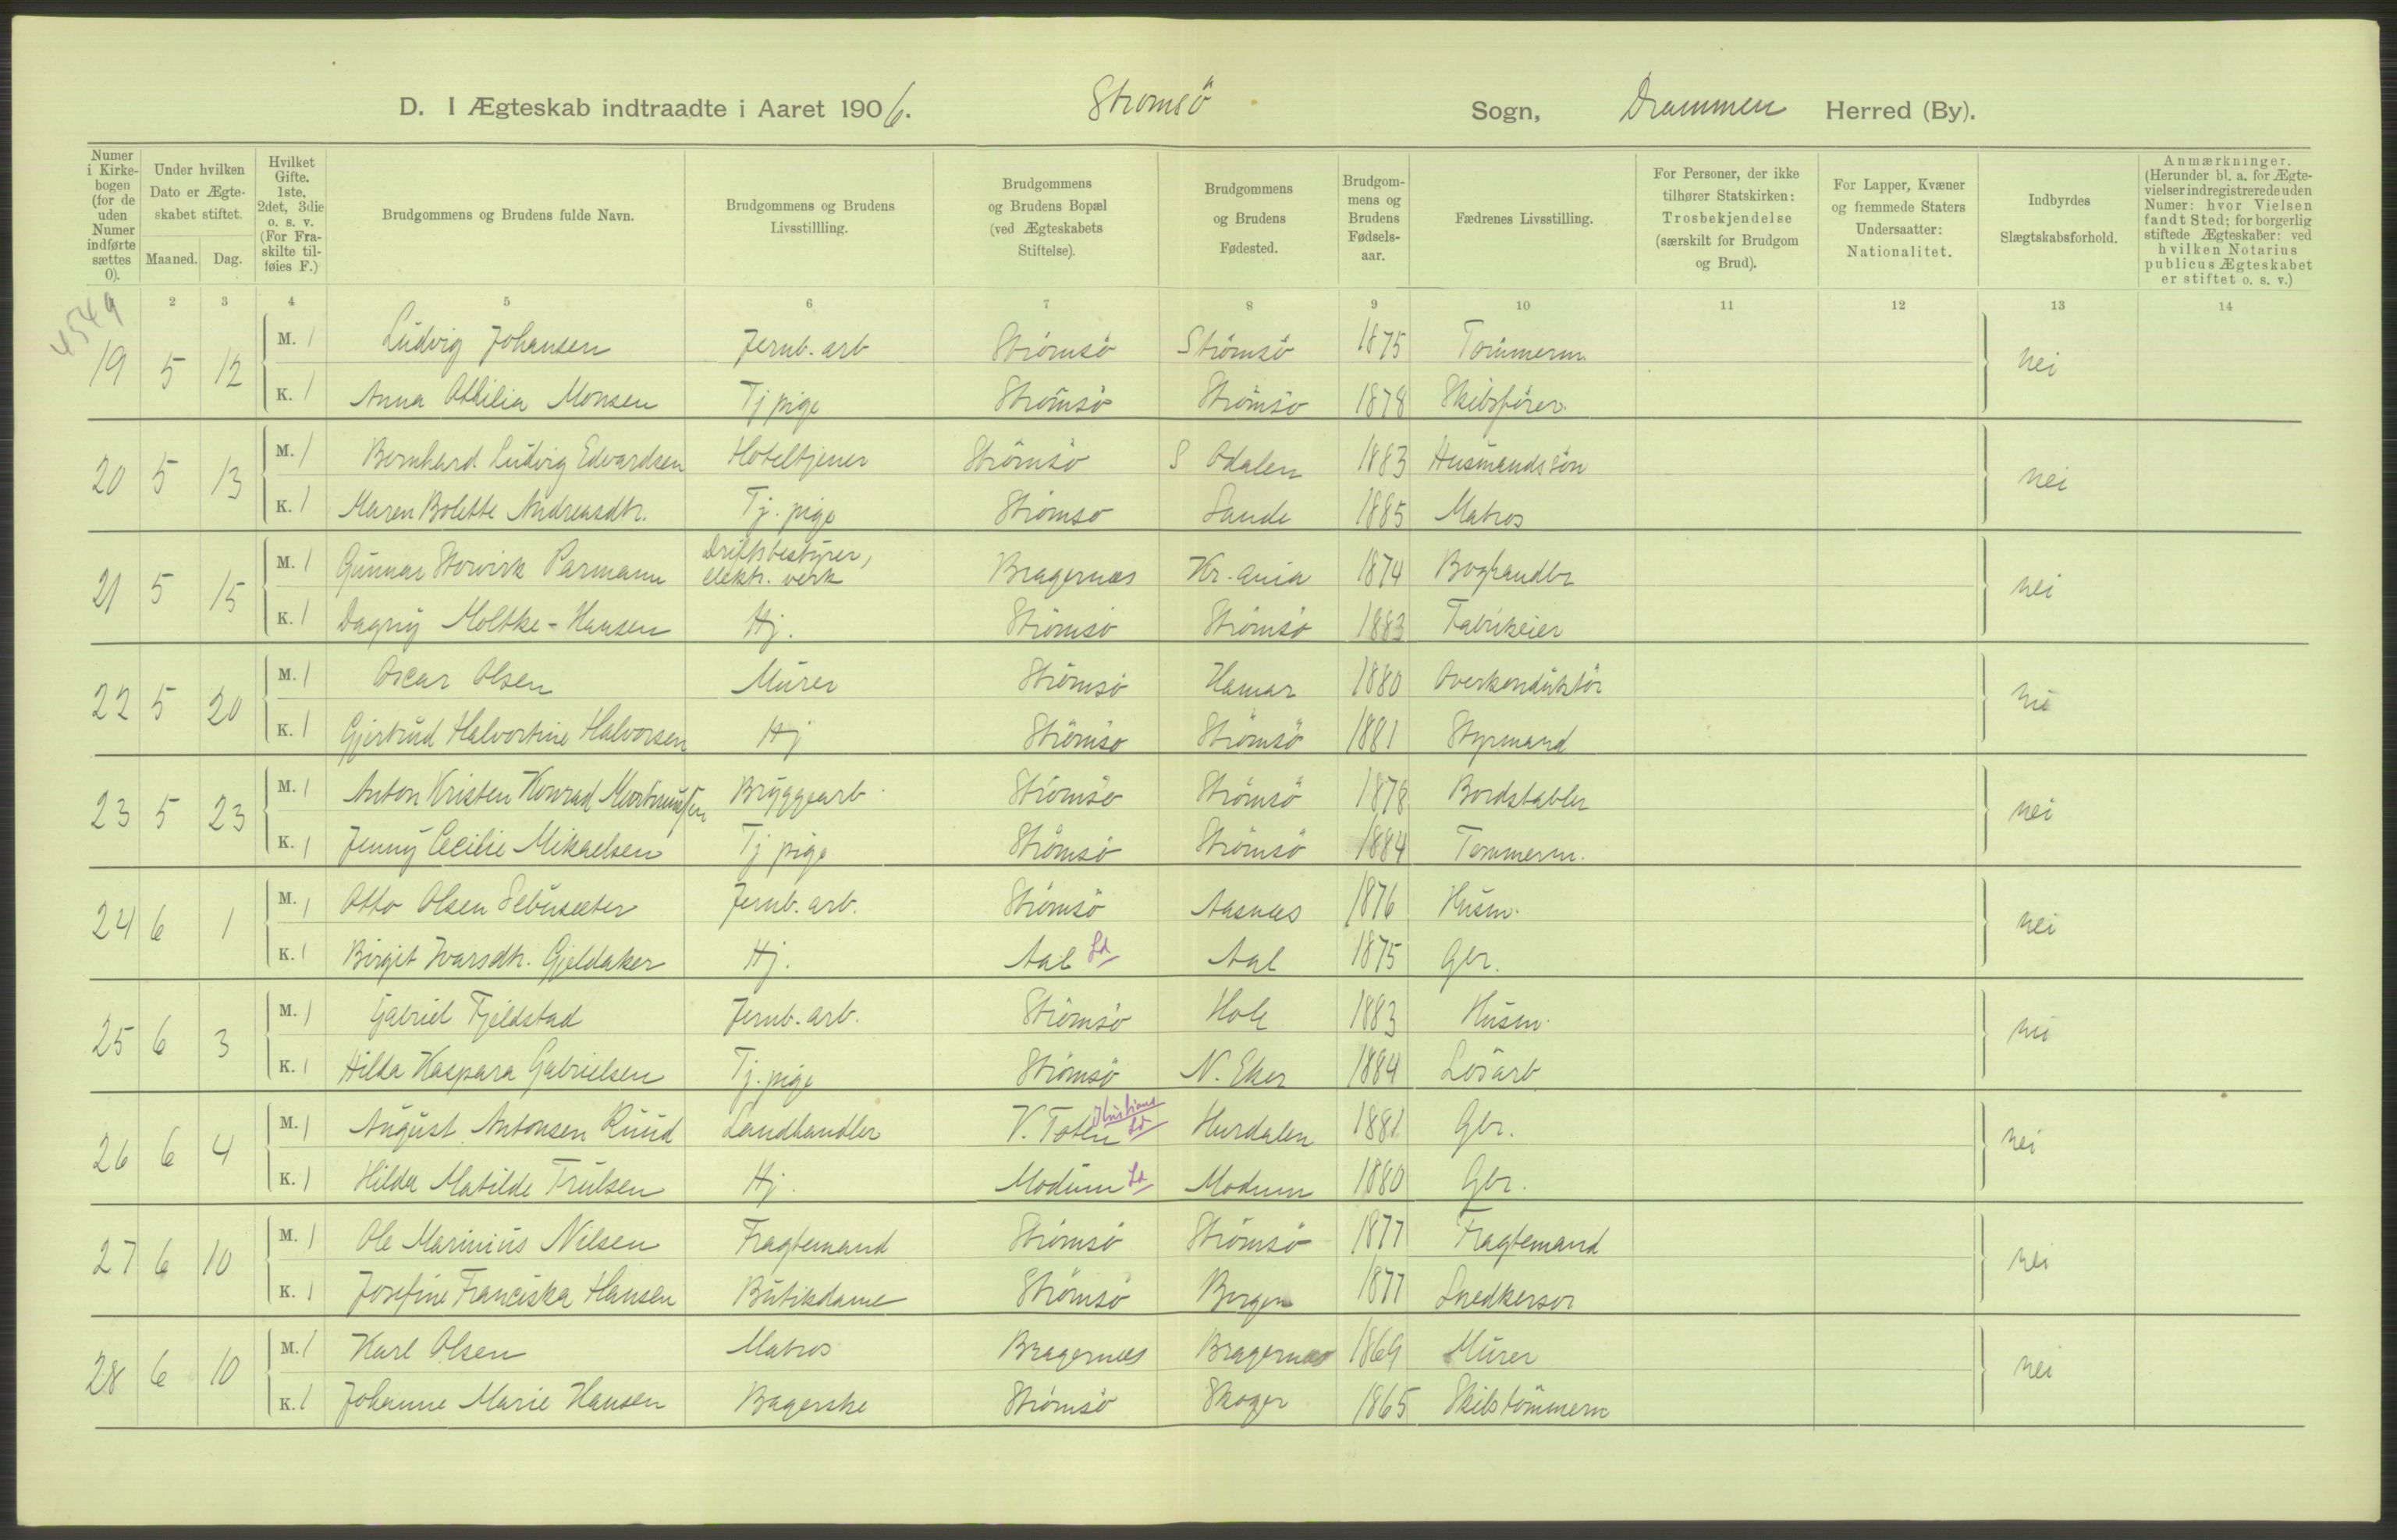 D. I Ægteskab indtraadte i Aaret 1906. Strømsö Sogn, Drammen Herred (By).
Numer i Kirkebogen (for de uden Numer indførte sættes 0).
Under hvilken Dato er Ægteskabet stiftet.
Maaned. Dag.
Hvilket Gifte. 1ste, 2det, 3die o. s. v. (For Fraskilte tilføies F.)
Brudgommens og Brudens fulde Navn.
Brudgommens og Brudens Livsstillling.
Brudgommens og Brudens Bopæl (ved Ægteskabets Stiftelse).
Brudgommens og Brudens Fødested.
Brudgommens og Brudens Fødselsaar.
Fædrenes Livsstilling.
For Personer, der ikke tilhører Statskirken: Trosbekjendelse (særskilt for Brudgom og Brud).
For Lapper, Kvæner og fremmede Staters Undersaatter: Nationalitet.
Indbyrdes Slægtskabsforhold.
Anmærkninger. (Herunder bl. a. for Ægtevielser indregistrerede uden Numer: hvor Vielsen fandt Sted; for borgerlig stiftede Ægteskaber: ved hvilken Notarius publicus Ægteskabet er stiftet o. s. v.)
2 3 4 5 6 7 8 9 10 11 12 13 14
4549
19 5 12 M. 1 Ludvig Johansen Jernb. arb Strömsö Strömsö 1875 Tömmerm. nei
K. 1 Anna Othilia Monsen Tj pige Strömsö Strömsö 1878 Skibsförer.
20 5 13 M. 1 Bernhard Ludvig Edvardsen Hoteltjener Strömsö S Odalen 1883 Husmandssön nei
K. 1 Maren Bolette Andreasdtr. Tj. pige Strömsö Sande 1885 Matros
21 5 15 M. 1 Gunnar Storvik Parmann Driftsbestyrer, elektr. verk Bragernæs Kr.ania 1874 Boghandler nei
K. 1 Dagny Moltke-Hansen Hj. Strömsö Strömsö 1883 Fabrikeier
22 5 20 M. 1 Oscar Olsen Murer Strömsö Hamar 1880 Overkonduktör nei
K. 1 Gjertrud Halvortine Halvorsen Hj Strömsö Strömsö 1881 Styrmand
23 5 23 M. 1 Anton Kristen Konrad Martinussen Bryggearb Strömsö Strömsö 1878 Bordstabler nei
K. 1 Jenny Cecilie Mikaelsen Tj pige Strömsö Strömsö 1884 Tömmerm.
24 6 1 M. 1 Otto Olsen Sebusæter Jernb. arb. Strömsö Aasnes 1876 Husm. nei
K. 1 Birgit Ivarsdtr. Gjeldaker Hj. Aal Ld Aal 1875 Gbr.
25 6 3 M. 1 Gabriel Fjeldstad Jernb. arb. Strömsö Hole 1883 Husm. nei
K. 1 Hilda Kaspara Gabrielsen Tj. pige Strömsö N. Eker 1884 Lösarb
26 6 4 M. 1 August Antonsen Ruud Landhandler V. Toten Kristians Ld Hurdalen 1881 Gbr. nei
K. 1 Hilda Matilde Trulsen Hj. Modum Ld Modum 1880 Gbr.
27 6 10 M. 1 Ole Marinius Nilsen Fragtemand Strömsö Strömsö 1877 Fragtemand nei
K. 1 Josefine Franciska Hansen Butikdame Strömsö Bergen 1877 Snedkersv
28 6 10 M. 1 Karl Olsen Matros Bragernæs Bragernæs 1869 Murer nei
K. 1 Johanne Marie Hansen Bagerske Strömsö Skoger 1865 Skibstömmerm